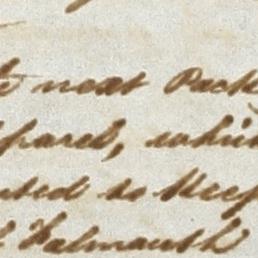 next Pack
pared, which
to Keep
Falmouth